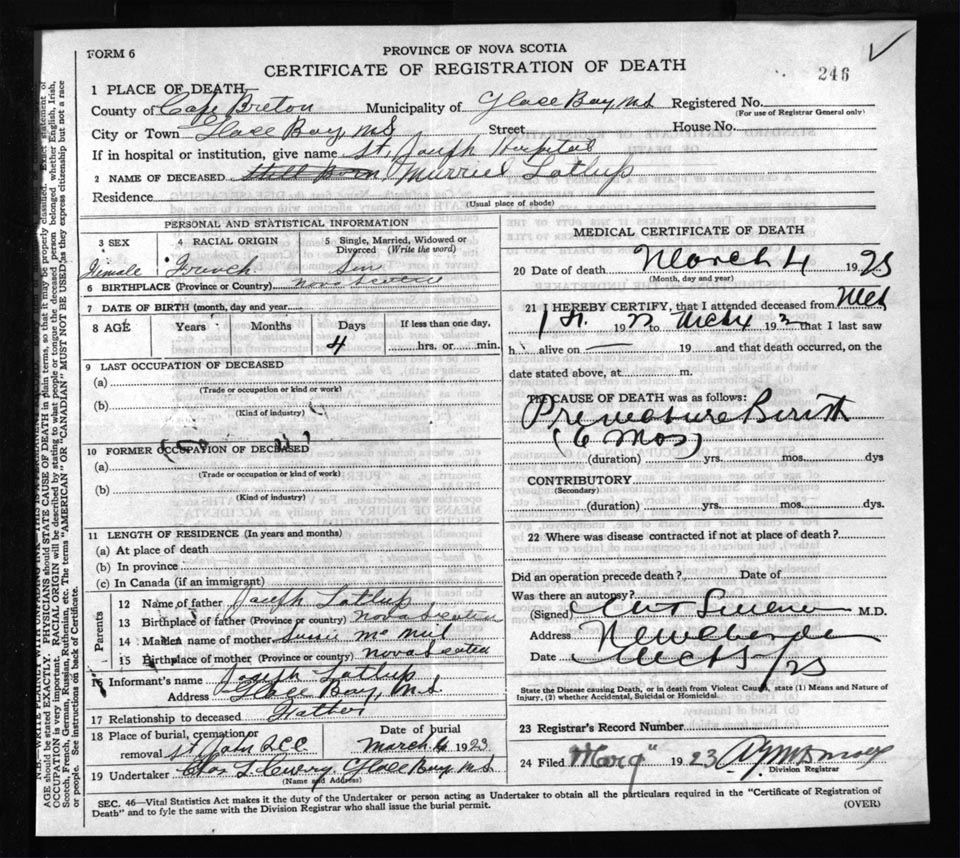 FORM 6
PROVINCE OF NOVA SCOTIA
CERTIFICATE OF REGISTRATION OF DEATH
246
1 PLACE OF DEATH—
County of Cape Breton Municipality of Glace Bay, N.S Registered No.
(For use of Registrar General only)
City or Town Glace Bay, N.S Street House No.
If in hospital or institution, give name St. Joseph Hospital
2 NAME OF DECEASED Still Born Murriel
Residence
(Usual place of abode)
PERSONAL AND STATISTICAL INFORMATION
3 SEX 4 RACIAL ORIGIN 5 Single, Married, Widowed or Divorced (Write the word)
Female French Sin
6 BIRTHPLACE (Province or Country) Nova Scotia
7 DATE OF BIRTH (month, day and year)
8 AGE Years Months Days If less than one day,
4 hrs. or min.
9 LAST OCCUPATION OF DECEASED
(a)
(Trade or occupation or kind or work)
(b)
(Kind of industry)
10 FORMER OCCUPATION OF DECEASED
(a)
(Trade or occupation or kind of work)
(b)
(Kind of industry)
11 LENGTH OF RESIDENCE (In years and months)
(a) At place of death
(b) In province
(c) In Canada (if an immigrant)
Parents
12 Name of father Joseph
13 Birthplace of father (Province or country) Nova Scotia
14 Maiden name of mother Mc Neil
15 Birthplace of mother (Province or country) Nova Scotia
16 Informant's name Joseph
Address Glace Bay, N.S
17 Relationship to deceased Father
18 Place of burial, cremation or removal St John Date of burial March 6 1923
19 Undertaker Glace Bay N.S
(Name and Address)
MEDICAL CERTIFICATE OF DEATH
20 Date of death March 4 1923
(Month, day and year)
21 I HEREBY CERTIFY, that I attended deceased from Mch
1 st. 19 to 192 that I last saw
h alive on — 19 and that death occurred, on the
date stated above, at m.
The CAUSE OF DEATH was as follows:
Premature Birth
(6 mos)
(duration) yrs. mos. dys
CONTRIBUTORY
(Secondary)
(duration) yrs. mos. dys.
22 Where was disease contracted if not at place of death?
Did an operation precede death? Date of
Was there an autopsy?
(Signed) M.D.
Address New Aberdeen
Date Mch 5/23
State the Disease causing Death, or in death from Violent Causes, state (1) Means and Nature of
Injury, (2) whether Accidental, Suicidal or Homicidal.
23 Registrar's Record Number
24 Filed Mar 9" 1923
Division Registrar
SEC. 46—Vital Statistics Act makes it the duty of the Undertaker or person acting as Undertaker to obtain all the particulars required in the "Certificate of Registration of
Death" and to fyle the same with the Division Registrar who shall issue the burial permit. (OVER)
N.B.—WRITE PLAINLY WITH UNFADING INK—THIS IS A PERMANENT
AGE should be stated EXACTLY. PHYSICIANS should STATE CAUSE OF DEATH in plain terms, so that it may be properly classified. Exact statement of
OCCUPATION is very important. RACIAL ORIGIN will be described by stating to what people or tongue the deceased person belonged whether English, Irish,
Scotch, French, German, Russian, Ruthenian, etc. The terms "AMERICAN" OR "CANADIAN" MUST NOT BE USED as they express citizenship but not a race
or people. See instructions on back of Certificate.